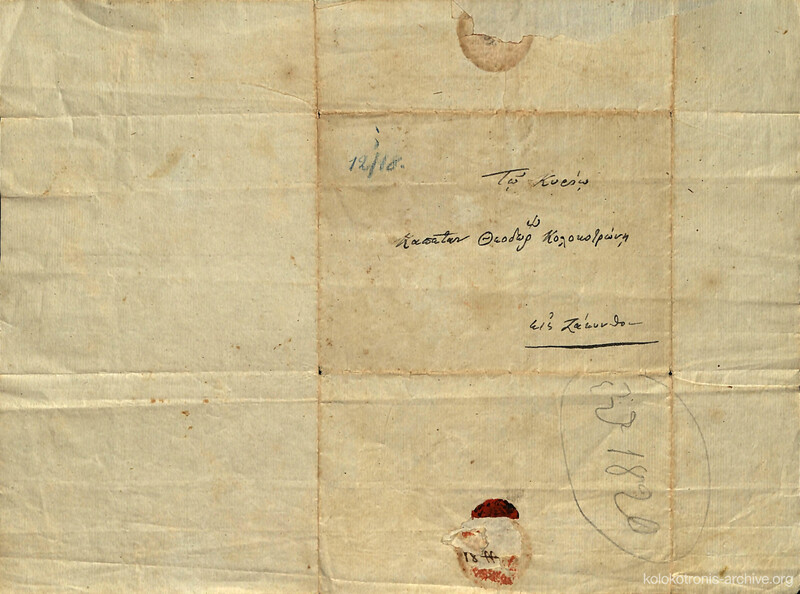 12/18.
Τῷ Κυρίῳ
Καπετὰν Θεοδώρῳ Κολοκοτρώνῃ
εἰς Ζάκυνθον
1820
kolokotronis-archive.org